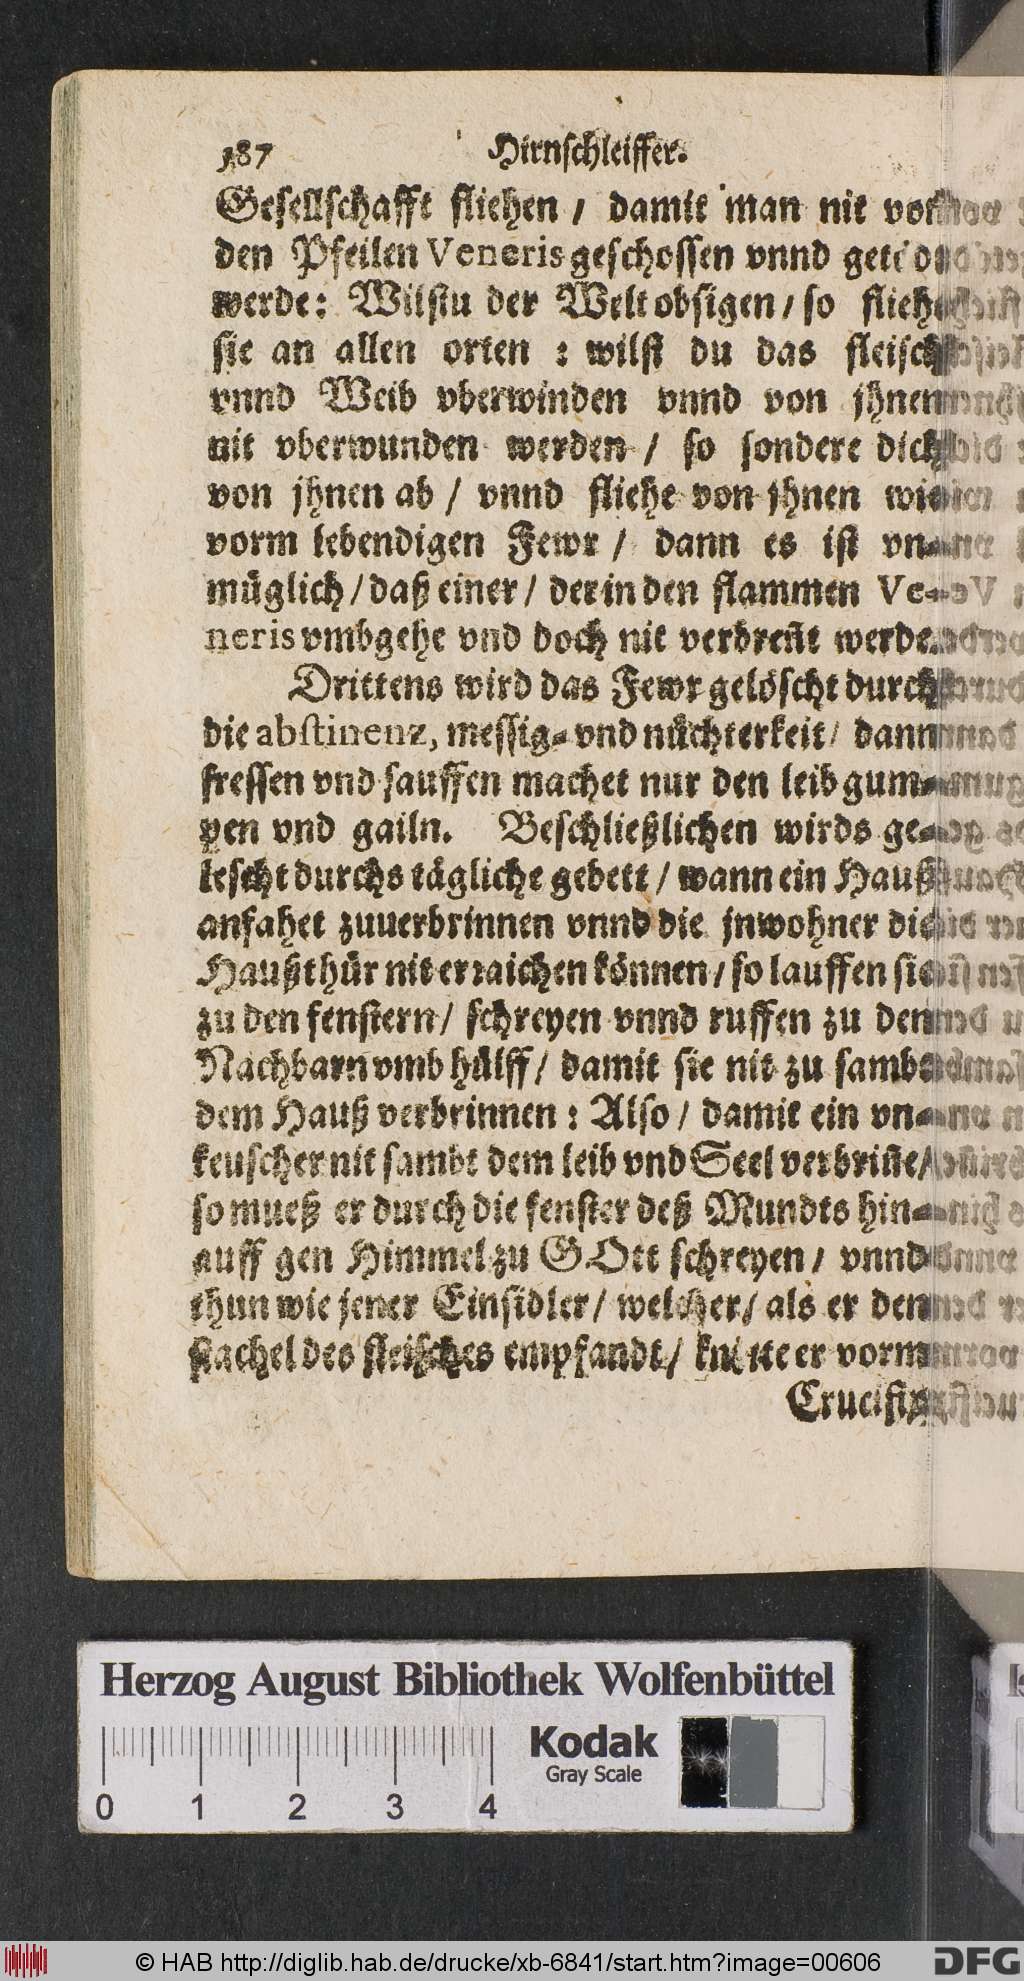 187 Hirnschleiffer.
Gesellschafft fliehen / damit man nit von
den Pfeilen Veneris geschossen vnnd getödt
werde: Wilstu der Welt obsigen / so fliehe
sie an allen orten : wilst du das fleisch
vnnd Weib vberwinden vnnd von jhnen
nit vberwunden werden / so sondere dich
von jhnen ab / vnnd fliehe von jhnen wie
vorm lebendigen Fewr / dann es ist vn-
müglich / daß einer / der in den flammen Ve-
neris vmbgehe vnd doch nit verbreñt werde.
Drittens wird das Fewr gelöscht durch
die abstinenz, messig- vnd nüchterkeit / dann
fressen vnd sauffen machet nur den leib gum-
pen vnd gailn. Beschließlichen wirds ge-
lescht durchs tägliche gebett / wann ein Hauß
anfahet zuuerbrinnen vnnd die jnwohner die
Haußthür nit erraichen können / so lauffen sie
zu den fenstern / schreyen vnnd ruffen zu den
Nachbarn vmb hülff / damit sie nit zu sambt
dem Hauß verbrinnen : Also / damit ein vn-
keuscher nit sambt dem leib vnd Seel verbriñe /
so mueß er durch die fenster deß Mundts hin-
auff gen Himmel zu GOtt schreyen / vnnd
thun wie jener Einsidler / welcher / als er den
stachel des fleisches empfandt / kniete er vorm
Crucifix
Herzog August Bibliothek Wolfenbüttel
Kodak
Gray Scale
0 1 2 3 4
© HAB http://diglib.hab.de/drucke/xb-6841/start.htm?image=00606
DFG